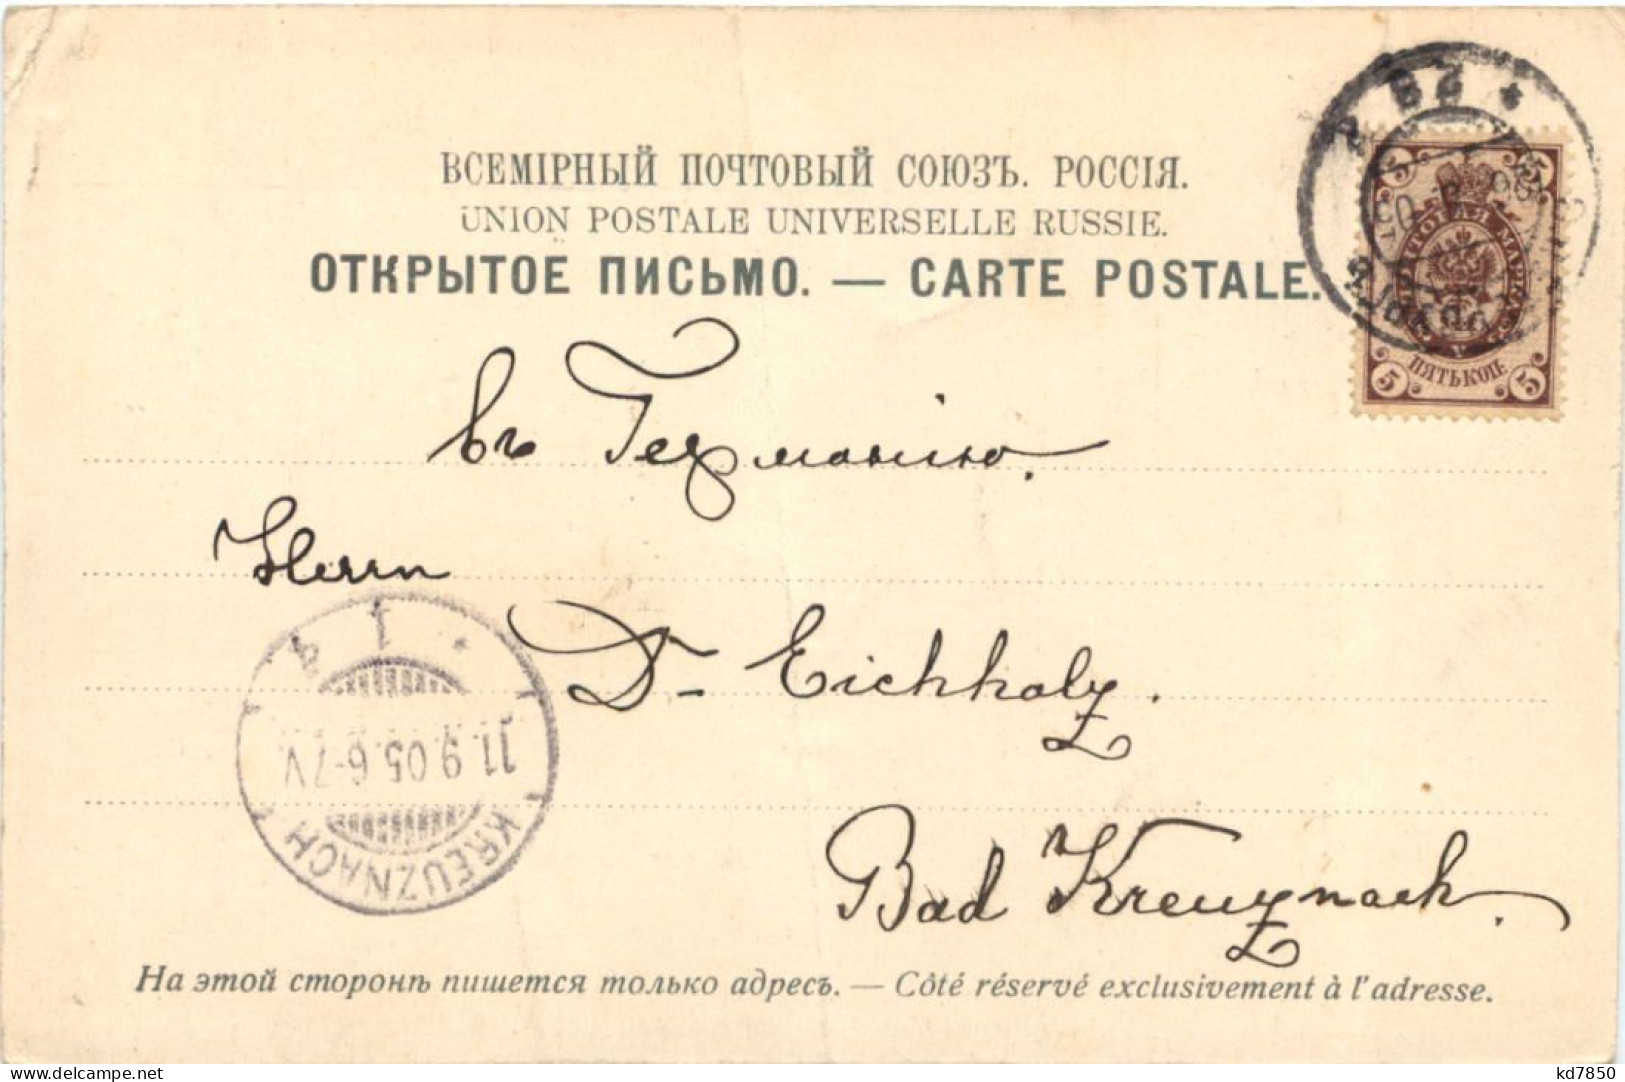 ВСЕМІРНЫЙ ПОЧТОВЫЙ СОЮЗЪ. РОССІЯ.
UNION POSTALE UNIVERSELLE RUSSIE.
ОТКРЫТОЕ ПИСЬМО. — CARTE POSTALE.
5 5
ПОЧТОВАЯ МАРКА
ПЯТЬ КОП.
5 5
въ Германію.
Herrn
Dr Eichholz.
Bad Kreuznach.
KREUZNACH
11.9.05.6-7V.
На этой сторонѣ пишется только адресъ. — Côté réservé exclusivement à l'adresse.
delcampe.net
kd7850